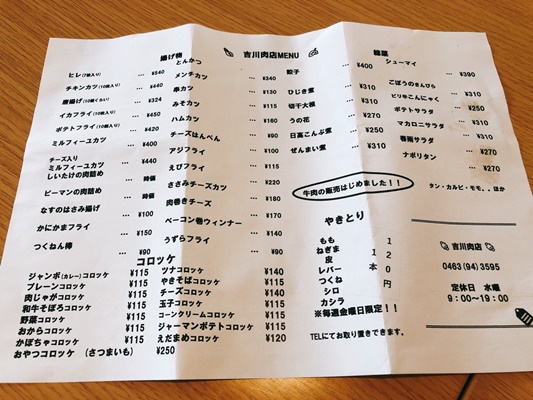 吉川肉店MENU
揚げ物
ヒレ(7個入り) … ¥540
チキンカツ(10個入り) … ¥440
唐揚げ(10個くらい) … ¥324
イカフライ(10個入り) … ¥450
ポテトフライ(10個入り) … ¥420
ミルフィーユカツ … ¥440
チーズ入り
ミルフィーユカツ … ¥440
しいたけの肉詰め … 時価
ピーマンの肉詰め … 時価
なすのはさみ揚げ … ¥100
かにかまフライ … ¥150
つくねん棒 … ¥90
とんかつ … ¥340
メンチカツ … ¥130
串カツ
みそカツ … ¥160
ハムカツ … ¥90
チーズはんぺん … ¥150
アジフライ … ¥115
えびフライ
ささみチーズカツ … ¥220
肉巻きチーズ … ¥180
ベーコン巻ウィンナー … ¥170
うずらフライ … ¥140
惣菜
餃子 … ¥400
ひじき煮 … ¥310
切干大根 … ¥310
うの花 … ¥250
日高こんぶ煮 … ¥310
ぜんまい煮 … ¥310
シューマイ … ¥390
ごぼうのきんぴら … ¥310
ピリ辛こんにゃく … ¥310
ポテトサラダ … ¥250
マカロニサラダ … ¥310
春雨サラダ … ¥270
ナポリタン … ¥270
牛肉の販売はじめました!!
タン・カルビ・モモ。。ほか
コロッケ
ジャンボ(カレー)コロッケ ¥115
プレーンコロッケ ¥115
肉じゃがコロッケ ¥115
和牛そぼろコロッケ ¥115
野菜コロッケ ¥115
おからコロッケ ¥115
かぼちゃコロッケ ¥115
おやつコロッケ (さつまいも) ¥250
ツナコロッケ ¥140
やきそばコロッケ ¥115
チーズコロッケ ¥140
玉子コロッケ ¥115
コーンクリームコロッケ ¥115
ジャーマンポテトコロッケ ¥115
えだまめコロッケ ¥120
やきとり
もも
ねぎま
皮
レバー
つくね
シロ
カシラ
1本120円
※毎週金曜日限定!!
TELにてお取り置きできます。
吉川肉店
0463(94)3595
定休日 水曜
9:00~19:00